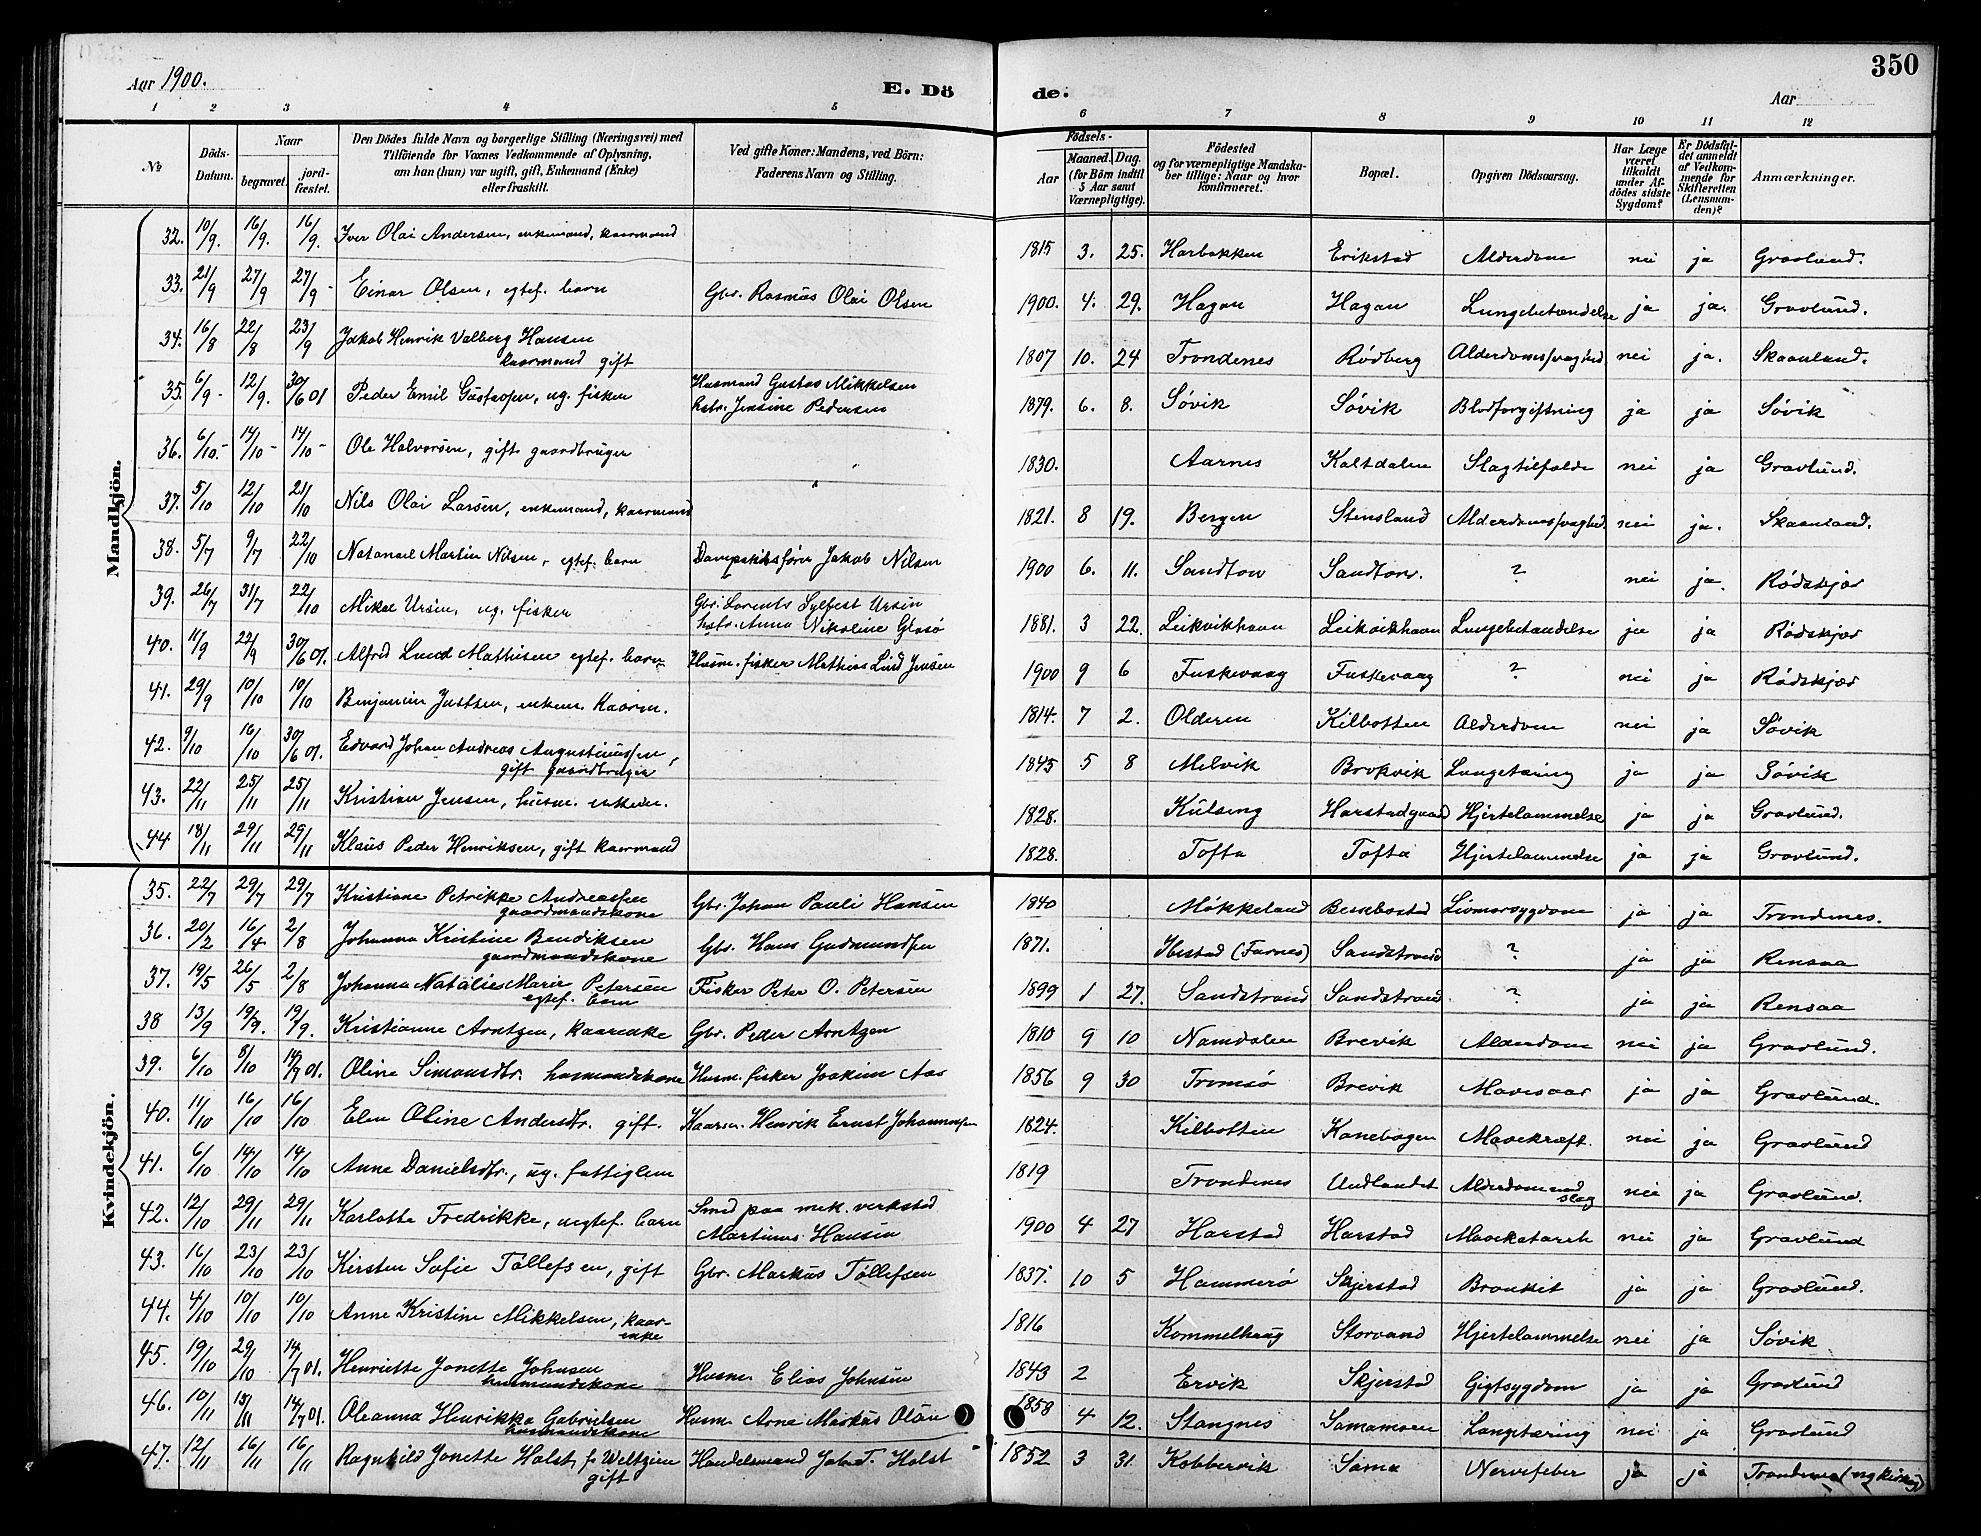 350
Aar 1900. E. Dö de. Aar
1 2 3 4 5 6 7 8 9 10 11 12
№ Döds-Datum. Naar begravet. jordfæstet. Den Dödes fulde Navn og borgerlige Stilling (Næringsvei) med Tilföiende for Voxnes Vedkommende af Oplysning, om han (hun) var ugift, gift, Enkemand (Enke) eller fraskilt. Ved gifte Koner: Mandens, ved Börn: Faderens Navn og Stilling. Födsels- Aar Maaned. Dag. (for Börn indtil 5 Aar samt Værnepligtige). Födested og for værnepligtige Mandskaber tillige: Naar og hvor Konfirmeret. Bopæl. Opgiven Dödsaarsag. Har Læge været tilkaldt under Afdödes sidste Sygdom? Er Dödsfaldet anmeldt af Vedkommende for Skifteretten (Lensmanden)? Anmærkninger.
Mandkjön.
32. 10/9. 16/9. 16/9. Iver Olai Andersen, enkemand, kaarmand 1815 3. 25. Harbakken Erikstad Alderdom nei ja Gravlund.
33. 21/9 27/9 27/9 - Einar Olsen, egtef. barn Gbr. Rasmus Olai Olsen 1900. 4. 29. Hagan Hagan Lungebetændelse ja ja. Gravlund.
34. 16/8 22/8 23/9 Jakob Henrik Valberg Hansen kaarmand gift 1807 10. 24 Trondenes Rødberg Alderdomssvaghed nei ja. Skaanland.
35. 6/9 - 12/9. 30/6 01 Peder Emil Gustavsen, ug. fisker Husmand Gustav Mikkelsen hstr. Jensine Pedersen 1879. 6. 8. Søvik Søvik Blodforgiftning ja ja Søvik
36. 6/10.- 14/10 - 14/10 - Ole Halvorsen, gift gaardbruger 1830. Aarnes Kaltdalen Slagtilfælde nei ja Gravlund.
37. 5/10 12/10 21/10 Nils Olai Larsen, enkemand, kaarmand 1821. 8 19. Bergen Stensland Alderdomssvaghed nei ja. Skaanland.
38. 5/7 9/7 22/10 Natanael Martin Nilsen, egtef. barn Dampskibsfører Jakob Nilsen 1900 6. 11. Sandtorv Sandtorv. ? nei ja. Rødskjær
39. 26/7 31/7 22/10 Mikal Ursin, ug. fisker Gbr. Lorents Sylfest Ursin hstr. Anna Nikoline 1881. 3 22. Leikvikhavn Leikvikhavn Lungebetændelse ja ja Rødskjær
40. 11/9 22/9 30/6 01. Alfred Lund Mathisen egtef. barn Husm. fisker Mathias Lind Jensen 1900 9 6 Fuskevaag Fuskevaag ? nei ja Rødskjær
41. 29/9 10/10 10/10 Benjamin Justsen, enkem. Kaarm. 1814. 7 2. Olderen Kilbotten Alderdom nei ja Søvik
42. 9/10 16/10 30/6 01. Edvard Johan Andreas Augustinussen, gift gaardbruger 1845 5 8 Melvik Brokvik Lungetæring ja ja Søvik
43. 22/11 25/11 25/11 Kristian Jensen, husm. enkem. 1828. Kulseng Harstadgaard Hjertelammelse ja ja Gravlund.
44 18/11 29/11 29/11 Klaus Peder Henriksen, gift kaarmand 1828. Tofta Tofta Hjertelammelse ja ja Gravlund.
Kvindekjön.
35. 22/7 29/7 29/7 Kristiane Petrikke Andreassen gaardmandskone Gbr. Johan Pauli Hansen 1840 Møkkeland Bessebostad Livmorsygdom ja ja Trondenes.
36. 20/2 16/4 2/8 Johanna Kristine Bendiksen gaardmandskone Gbr. Hans Gudmundsen 1871. Ibestad (Farnes) Sandstrand ? ja ja Rensaa
37. 19/5 26/5 2/8 Johanna Natalie Marie Petersen egtef. barn Fisker Peter O. Petersen 1899 1 27. Sandstrand Sandstrand ? ja ja Rensaa
38 13/9 19/9. 19/9. Kristianne Arntzen, kaarenke Gbr. Peder Arntzen 1810 9 10 Namdalen Brevik Alderdom nei ja Gravlund.
39. 6/10 8/10 14/7 01. Oline Simonsdtr. husmandskone Husm. fisker Joakim Aas 1856 9 30 Tromsø Brevik Mavesaar ja ja Gravlund.
40. 11/10 16/10 16/10 Elen Oline Andersdtr. gift. Kaarm. Henrik Ernst Johannessen 1824. Kilbotten Kanebogen Mavekræft. nei ja Gravlund
41. 6/10 14/10 14/10 Anne Danielsdtr., ug. fattiglem 1819 Trondenes Undlandet Alderdom slag nei ja Gravlund.
42. 12/10 29/11 29/11 Karlotte Fredrikke, uegtef. barn Smed paa mek. verksted Martinus Hansen 1900 4 27 Harstad Harstad Mavekatarrh nei ja Gravlund
43. 16/10 23/10 23/10 Kirsten Sofie Tollefsen, gift Gbr. Markus Tollefsen 1837. 10 5 Hammerø Skjerstad Bronkit ja ja Gravlund.
44. 4/10 10/10 10/10 Anne Kristine Mikkelsen, kaarenke 1816 Kommelhaug Storvand Hjertelammelse nei ja Søvik
45. 19/10 29/10 14/7 01. Henriette Jonette Johnsen husmandskone Husm. Elias Johnsen 1843 2 Ervik Skjerstad Gigtsygdom ja ja Gravlund
46. 10/11 13/11 14/7 01. Oleanna Henrikka Gabrielsen husmandskone Husm. Arne Markus Olsen 1858 4 12. Stangnes Samamoen Lungetæring nei ja Gravlund
47. 12/11 16/11 16/11 Ragnhild Jonette Holst, f. Weltzien gift Handelsmand Jakob F. Holst 1852 3 31. Kobbervik Sama Nervefeber ja ja Trondenes